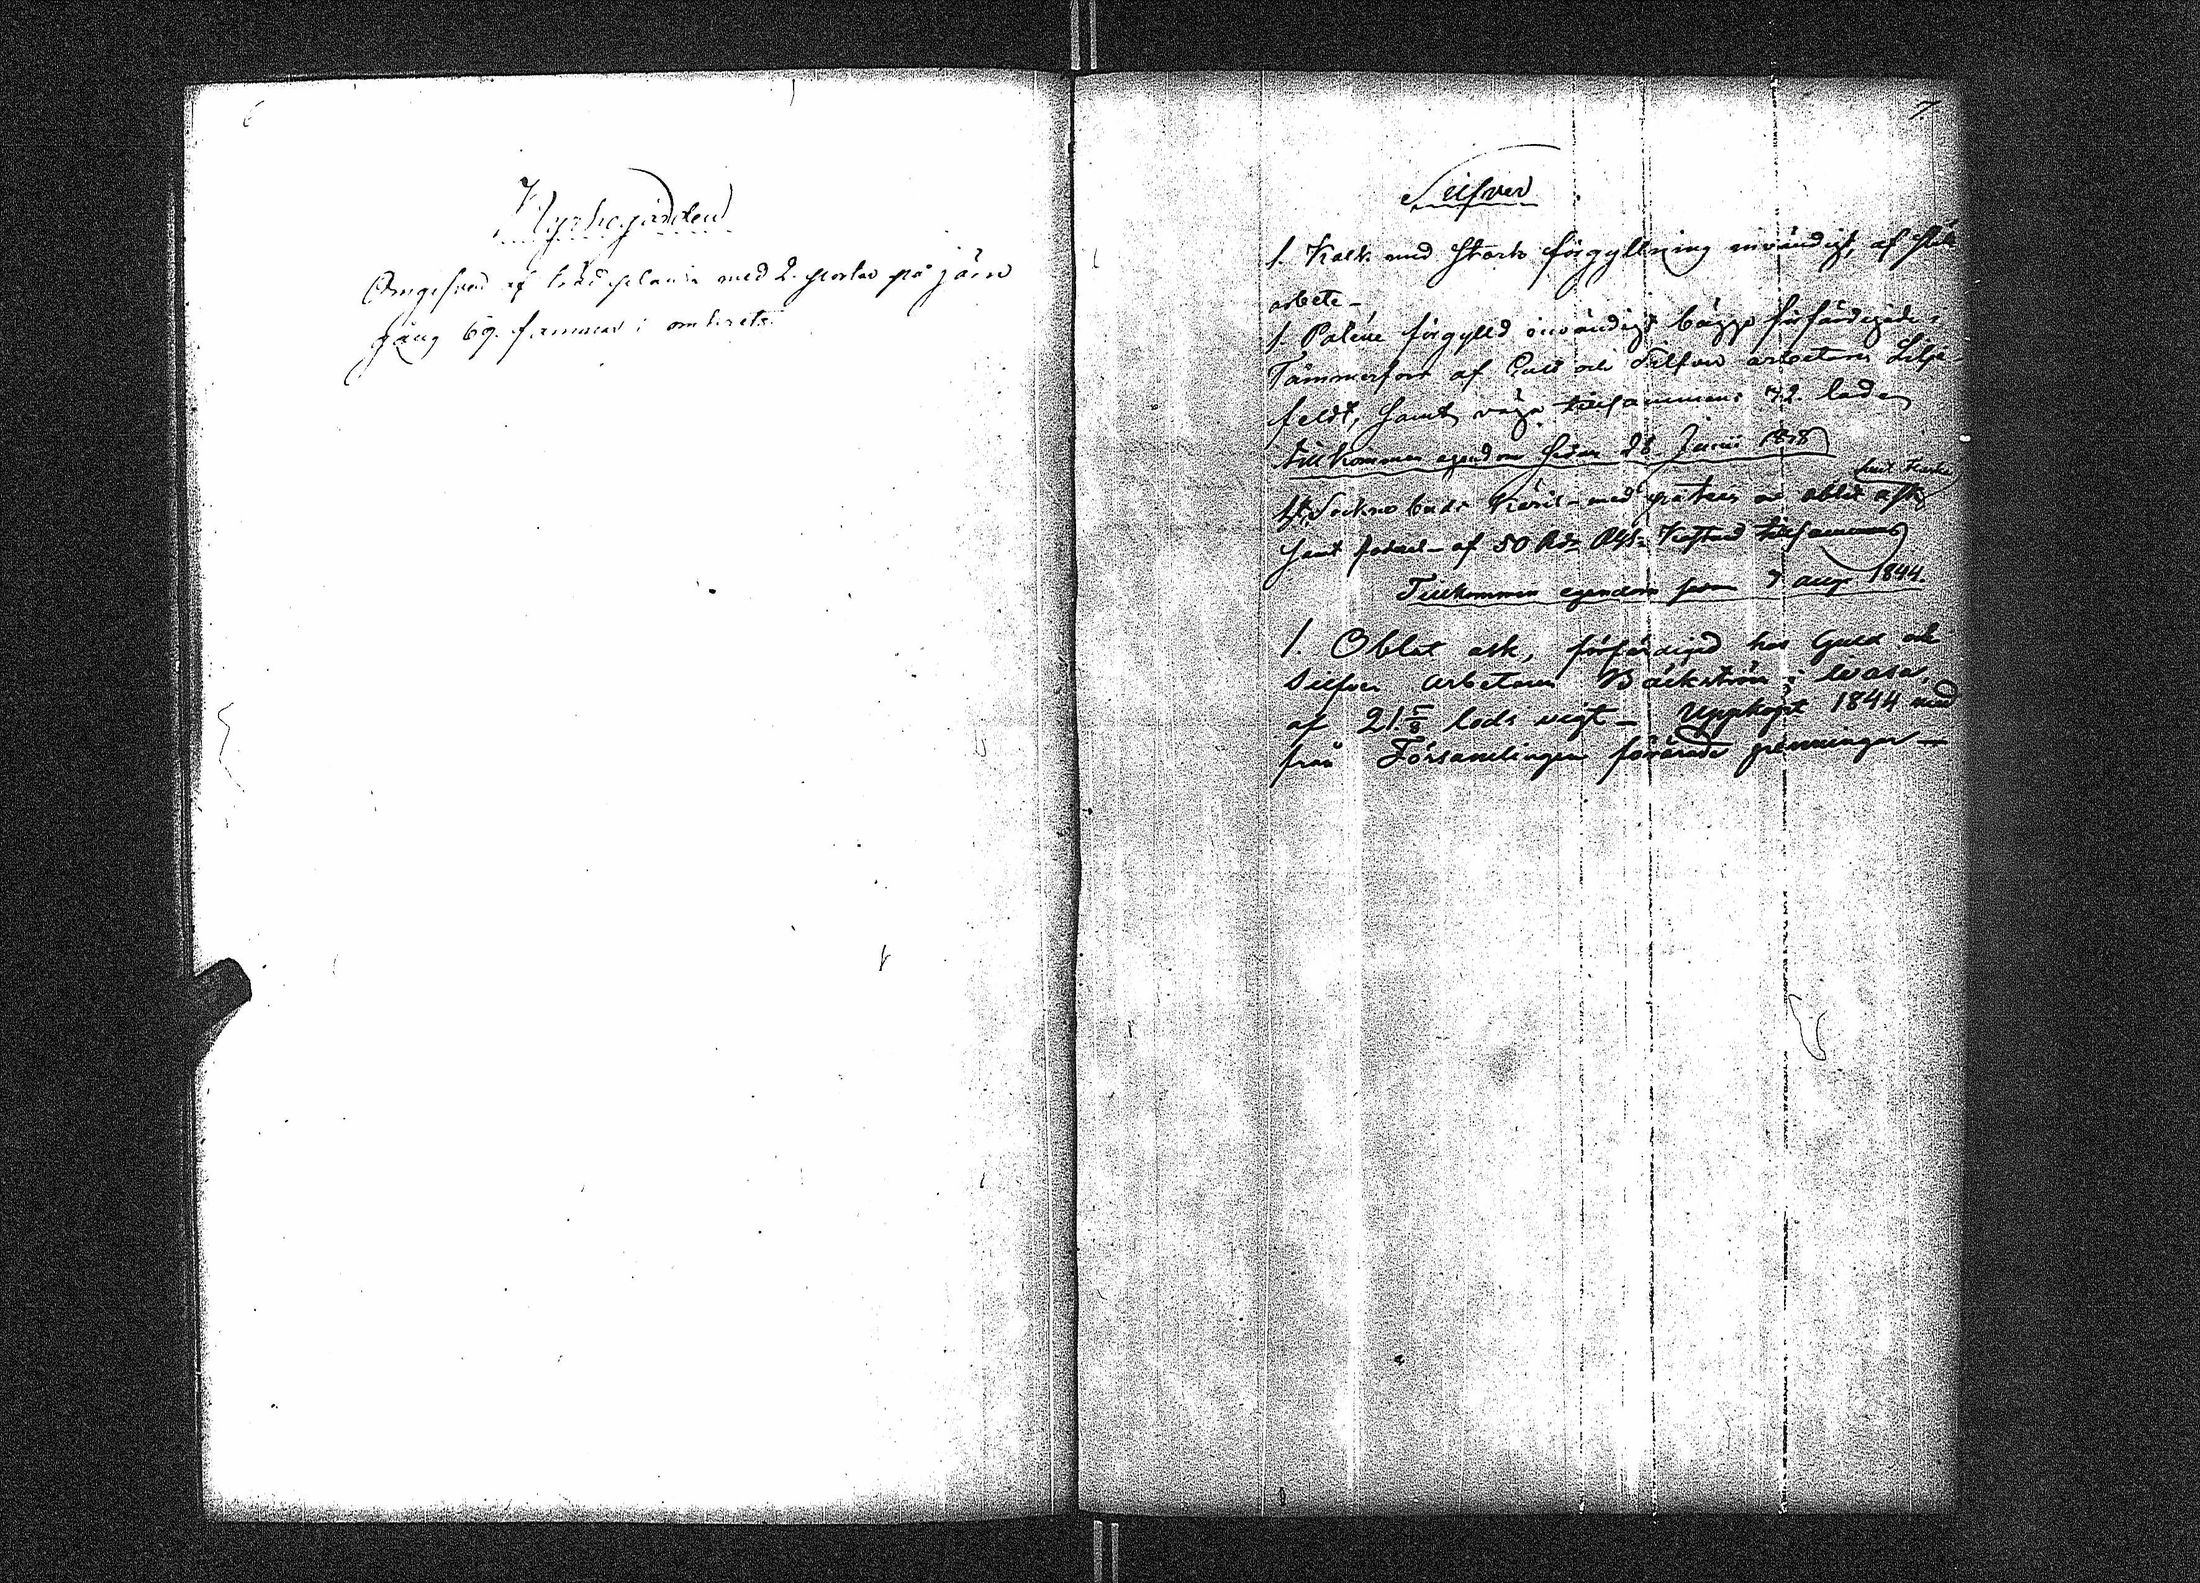 6
Kyrkogården
Omgifven af trädplank med 2. portar på järn
gång 69. famnar i omkrets.
7.
Silfver
1. Kalk med stark förgyllning invändigt, af slät
arbete –
1. Paténe förgylld invändigt bägge förfärdigade i
Tammerfors af Guld och Silfver arbetaren Lilje-
feldt, samt väga tillsammans 72. lod
Tillkommen egendom sedan 28 Junii 1838
1 st Sockne buds Käril – med patén och oblat ask
samt foderal – af 50 Rd Rgs tillsammans
Tillkommen egendom sedan 7 aug 1844.
1. Oblat ask, förfärdigad hos Guld och
Silfver arbetaren Bäckström i Wasa,
af 21.5/8 lods vigt – Uppköpt 1844 med
från Församlingen förärade penningar –